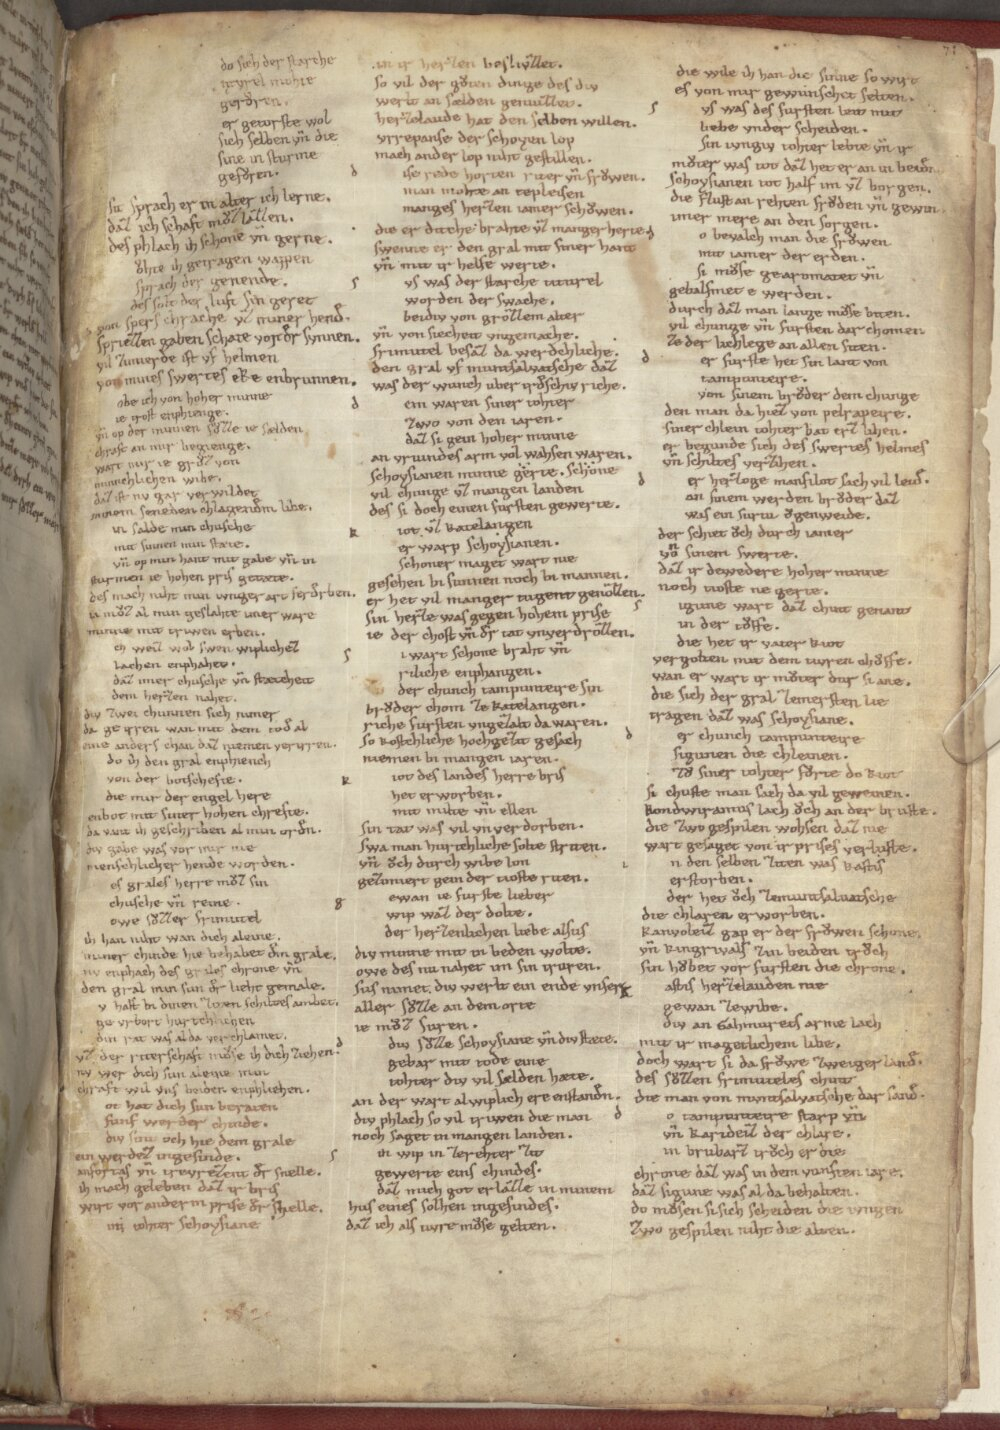 do sich der starche
tyturel mohte
gerŏren.
er getorste wol
sich selben vn̄ die
sine in sturme
gefŏren.
sit sprach er in alter ich lerne.
daz ich schaft mŏz lazzen.
des phlach ih schone vn̄ gerne.
ŏhte ih getragen wappen
sprach der genende.
des solt der luft sin geret
von spers chrache vz miner hend̄.
spriezzen gaben schate vor dˢ svnnen.
vil zimierde ist vf helmen
von mines swertes eke enbrunnen.
obe ich von hoher minne
ie trost enphienge.
vn̄ op der minnen sŏzze ie sælden
chraft an mir begienge.
wart mir ie grŭz von
minnchlichem wibe.
daz ist nv gar verwildet
minem seneden chlagendem libe.
in sælde min chusche
mit sinnen min stæte.
vn̄ op min hant mit gabe vn̄ in
sturmen ie hohen pris getæte.
des mach niht min iunger art fˢdˢben.
ia mŏz al min geslæhte imer ware
minne mit triwen erben.
ch weiz wol swen wiplichez
lachen enphahet.
daz imer chusche vn̄ stætcheit
dem herzen nahet.
div zwei chunnen sich nimer
da ge irren wan mit dem tod al
eine anders chan daz niemen verirren.
do ih den gral enphiench
von der botschefte.
die mir der engel here
enbot mit siner hohen chrefte.
da vant ih geschriben al min ordn̄.
div gabe was vor mir nie
menschlicher hende worden.
es grales herre mŏz sin
chusche vn̄ reine.
owe sŏzzer frimutel
ih han niht wan dich aleine.
miner chinde hie behabet dem grale.
nv enphach des grales chrone vn̄
den gral min sun dˢ lieht gemale.
v hast bi dinen ziten schiltes ambet.
ge vrbort hurtchlichen
din rat was alda verchlamet.
vz der riterschaft mŏse ih dich ziehen.
nv wer dich sun aleine min
chraft wil vns beiden enphliehen.
ot hat dich sun beraten
funf werder chinde.
div sint och hie dem grale
ein werdez ingesinde.
anfortas vn̄ trevrezent dˢ snelle.
ih mach geleben daz ir pris
wirt vor anderm prise dˢ shelle.
in tohter schoysiane
in ir herzen beslivzzet.
so vil der gŏten dinge des div
werlt an sælden geniuzzet.
herzelaude hat den selben willen.
vrrepanse der schoyen lop
mach ander lop niht gestillen.
ise rede horten riter vn̄ frŏwen.
man mohte an tepleisen
manges herzen iamer schŏwen.
die er diche brahte vz manger herte
swenne er den gral mit siner hant
vn̄ mit ir helfe werte.
vs was der starche titurel
worden der swache.
beidiv von grŏzzem alter
vn̄ von siecheit vngemache.
frimutel besaz da werdchliche.
den gral vf muntsalvatsche daz
was der wunch uber irdˢschiv riche.
em waren siner tohter
zwo von den iaren.
daz si gein hoher minne
an vrivndes arm vol wahsen waren.
schoysianen minne gerte. schone
vil chunge vz mangen landen
des si doch einen fursten gewerte.
iot vz katelangen
er warp schoysianen.
schoner maget wart nie
gesehen bi sunnen noch bi mannen.
er het vil manger tugent genozzen.
sin herze was gegen hohem prise
ie der chost vn̄ dˢ tat vnverdrozzen.
i wart schone braht vn̄
riliche enphangen.
der chunch tampunteire sin
brŏder chom ze katelangen.
riche fursten vngezalt da waren.
so kostchliche hochgezit gesach
niemen bi mangen iaren.
iot des landes herre bris
het erworben.
mit milte vn̄ ellen
sin tat was vil vnverdorben.
swa man hurtchliche solte striten.
vn̄ ŏch durch wibe lon
gezimiert gein der tioste riten.
ewan ie furste lieber
wip waz der dolte.
der herzenlichen liebe alsus
div minne mit in beden wolte.
owe des nu nahet im sin truren.
sus nimet div werlt ein ende vnser
aller sŏzze an dem orte
ie mŏz suren.
div sŏzze schoysiane vn̄ div stæte.
gebar mit tode eine
tohter div vil sælden hæte.
an der wart al wiplich ere enstandn̄.
div phlach so vil triwen die man
noch saget in mangen landen.
in wip in zerehter zit
gewerte eins chindes.
daz mich got erlazze in minem
hus eines solhen ingesindes.
daz ich als tivre mŏse gelten.
die wile ih han die sinne so wirt
es von mir gewunschet selten.
vs was des fursten leit mit
liebe vnder scheiden.
sin ivngiv tohter lebte vn̄ ir
mŏter was tot daz het er an in beidn̄.
schoysianen tot half im vz borgen.
die flust an rehten frŏden vn̄ gewin
imer mere an den sorgen.
o bevalch man die frŏwen
mit iamer der erden.
si mŏse gearomatet vn̄
gebalsmet e werden.
durch daz man lange mŏse biten.
vil chunge vn̄ fursten dar chomen
ze der lichlege an allen siten.
er furste het sin lant von
tampunteire.
von sinem brŏder dem chunge
den man da hiez von pelrapeire.
siner chlein tohter bat erz lihen.
er begunde sich des swertes helmes
vn̄ schiltes verzihen.
er herzoge manfilot sach vil leid̄.
an sinem werden brŏder daz
was ein suriv ŏgenweide.
der schiet ŏch durch iamer
von sinem swerte.
daz ir dewedere hoher minne
noch tioste ne gerte.
igune wart daz chint genant
in der tŏffe.
die het ir vater kiot
vergolten mit dem tivren chŏffe.
wan er wart ir mŏter dur si ane.
die sich der gral zemersten lie
tragen daz was schoysiane.
er chunch tampunteire
sigunen die chleinen.
zŏ siner tohter fŏrte do kiot
si chuste man sach da vil geweinen.
kondwiramus lach ŏch an der bruste.
die zwo gespilen wohsen daz nie
wart gesaget von ir prises verluste.
n den selben ziten was kastis
erstorben.
der het ŏch zemuntsalvatsche
die chlaren erworben.
kanvoleiz gap er der frŏwen schone.
vn̄ kingrivals zin beiden trŏch
sin hŏbet vor fursten die chrone.
astis herzelauden nie
gewan zewibe.
div an Gahmurets arme lach
mit ir magetlichem libe.
doch wart si da frŏwe zweiger land̄.
des sŏzzen frimuteles chint
die man von muntsalvatsche dar sand̄.
o tampunteire starp vn̄
vn̄ karideiz der chlare.
in brubarz trŏch er die
chrone daz was in dem vunften iare.
daz sigune was al da behalten.
do mŏsen si sich scheiden die iungen
zwo gespilen niht die alten.